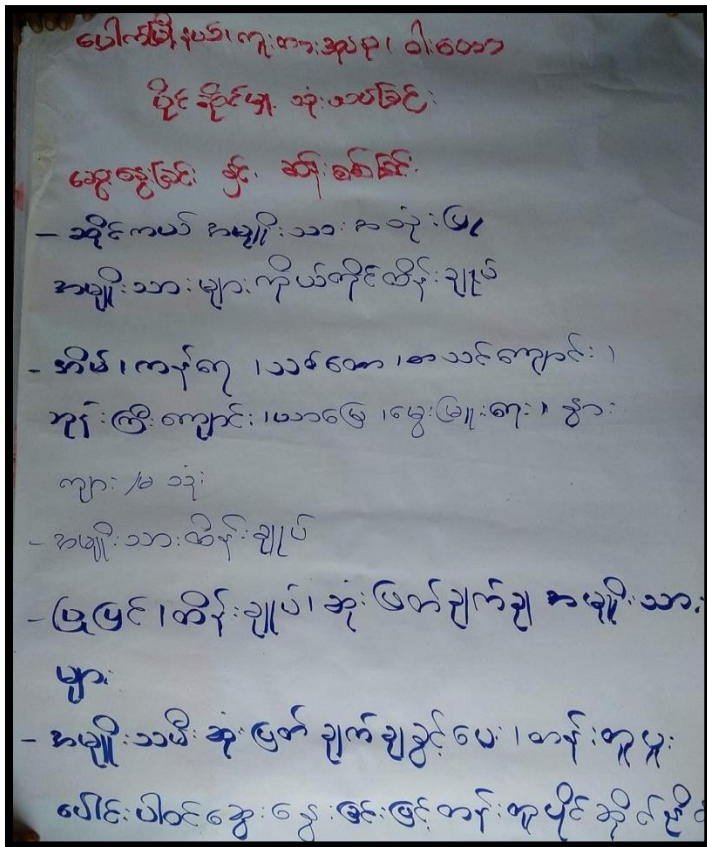 ပေါက်မြို့နယ်၊ ကူးတားအုပ်စု၊ ဝါးတော
ပိုင်ဆိုင်မှု သုံးသပ်ခြင်း
ဆွေးနွေးခြင်း နှင့် ဆန်းစစ်ခြင်း
- ဆိုင်ကယ် အမျိုးသား အသုံးပြု
အမျိုးသားများ ကိုယ်တိုင်ထိန်းချုပ်
- အိမ်၊ ကန်ရေ ၊သစ်တော ၊စာသင်ကျောင်း ၊
ဘုန်းကြီးကျောင်း ၊ယာမြေ ၊မွေးမြူရေး ၊ နွား
ကျား/မ သုံး
- အမျိုးသားထိန်းချုပ်
- ပြုပြင်၊ ထိန်းချုပ်၊ ဆုံးဖြတ်ချက်ချ အမျိုးသား
များ
- အမျိုးသမီး ဆုံးဖြတ်ချက်ချခွင့်ပေး ၊ တန်းတူပူး
ပေါင်းပါဝင်ဆွေးနွေးခြင်းဖြင့်တန်းတူပိုင်ဆိုင်နိုင်